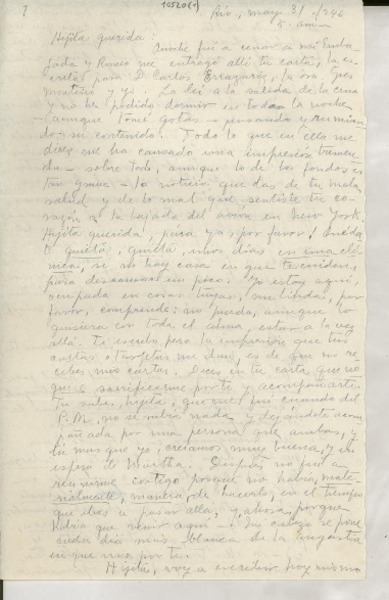 1
10520(1)
Río, mayo 31/946
Hijita querida:
Anoche fuí a cenar a mi Emba-
jada y me entregó allí tu carta, la es-
crita para D. Carlos Errázuriz, la Sra.
y yo. La leí a la salida de la cena
y no he podido dormir en toda la noche
- aunque tomé gotas - pensando y rumian-
do su contenido. Todo lo que en ella me
dices me ha causado una impresión tremen-
da - sobre todo, aunque lo de los fondos es
tan grave - la noticia que das de tu mala
salud y de lo mal que sentiste tu co-
razón a la bajada del avión en New York.
Hijita querida, para ya, por favor! Quéda-
te quieta, quieta, unos días en una clí-
nica, si no hay casa en que te cuiden,
para descansar un poco. Yo estoy aquí,
ocupada en cosas tuyas, mi linda, por
favor, comprende: no puedo, aunque lo
quisiera con toda el alma, estar a la vez
allá. Te escribo pero la impresión que tus
cartas o tarjetas me dan, es de que no re-
cibes mis cartas. Dices en tu carta que no
quise sacrificarme por ti y acompañarte.
Tu sabes, hijita, que me fuí cuando del
P.M. no se sabía nada y dejándote acom-
pañada por una persona que ambas, y
tu mas que yo, creíamos muy buena, y en
espera de Martha. Después no fuí a
reunirme contigo porque no había, mate-
rialmente, manera, de hacerlo, en el tiempo
que ibas a pasar allá, y, ahora, porque
había que venir aquí - Mi cabeza se pone
cada día más blanca de la angustia
en que vivo por ti.
Hijita, voy a escribir hoy mismo